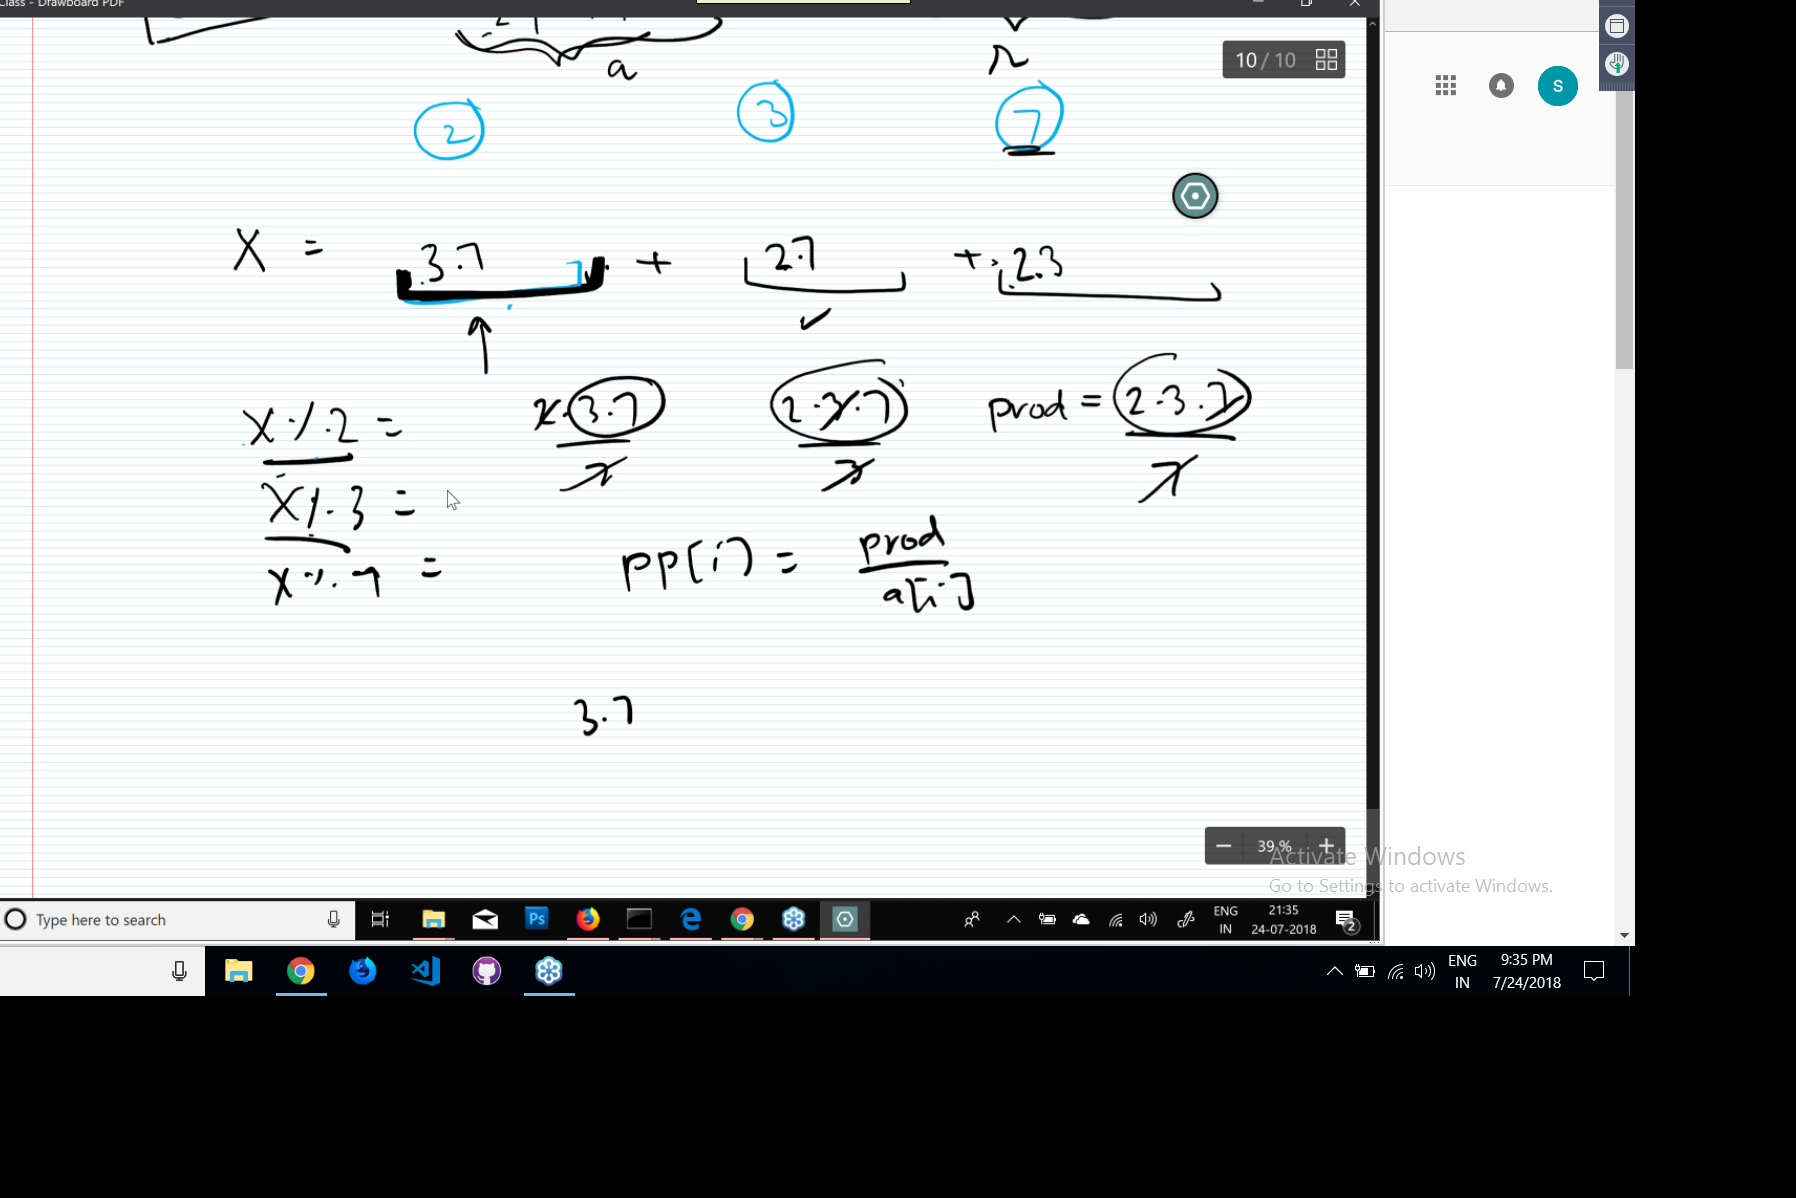 Class - Drawboard PDF
a
r
10 / 10
S
2
3
7
X = 3.7 + 2.7 + 2.3
X % 2 =
2.3.7
2
2.3.7
3
prod = 2.3.7
7
X % 3 =
X % 7 =
pp[i] = prod
a[i]
3.7
39 %
Activate Windows
Go to Settings to activate Windows.
Type here to search
Ps
ENG
IN
21:35
24-07-2018
2
ENG
IN
9:35 PM
7/24/2018